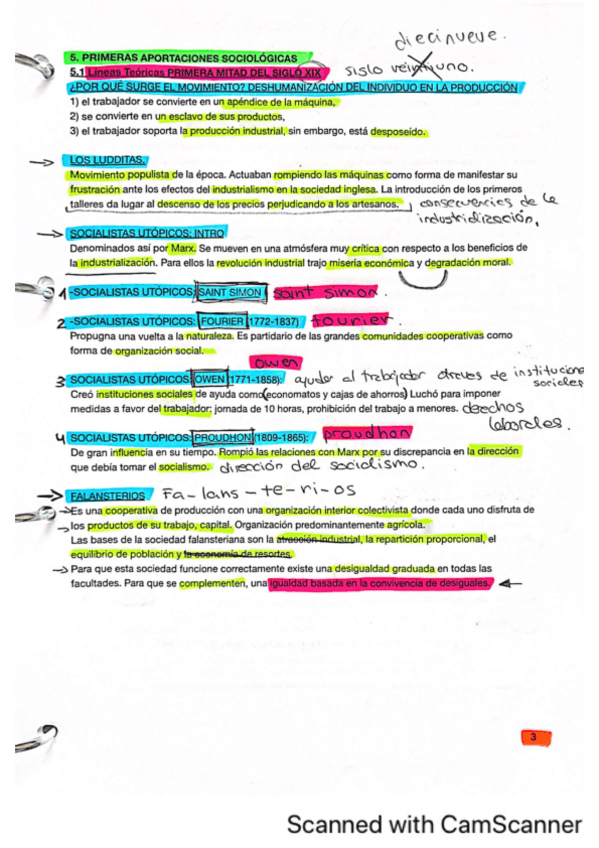 diecinueve.
5. PRIMERAS APORTACIONES SOCIOLÓGICAS
5.1 Lineas Teóricas PRIMERA MITAD DEL SIGLO XIX siglo uno.
¿POR QUÉ SURGE EL MOVIMIENTO? DESHUMANIZACIÓN DEL INDIVIDUO EN LA PRODUCCIÓN
1) el trabajador se convierte en un apéndice de la máquina,
2) se convierte en un esclavo de sus productos,
3) el trabajador soporta la producción industrial, sin embargo, está desposeído.
LOS LUDDITAS.
Movimiento populista de la época. Actuaban rompiendo las máquinas como forma de manifestar su
frustración ante los efectos del industrialismo en la sociedad inglesa. La introducción de los primeros
talleres da lugar al descenso de los precios perjudicando a los artesanos. consecuencias de la
industrialización.
SOCIALISTAS UTÓPICOS: INTRO
Denominados así por Marx. Se mueven en una atmósfera muy crítica con respecto a los beneficios de
la industrialización. Para ellos la revolución industrial trajo miseria económica y degradación moral.
1 -SOCIALISTAS UTÓPICOS: SAINT SIMON saint simon.
2 -SOCIALISTAS UTÓPICOS: FOURIER (1772-1837) fourier.
Propugna una vuelta a la naturaleza. Es partidario de las grandes comunidades cooperativas como
forma de organización social.
owen
3 SOCIALISTAS UTÓPICOS: OWEN (1771-1858): ayudar al trabajador atraves de institucione
sociales
Creó instituciones sociales de ayuda como(economatos y cajas de ahorros) Luchó para imponer
medidas a favor del trabajador: jornada de 10 horas, prohibición del trabajo a menores. derechos
laborales.
4 SOCIALISTAS UTÓPICOS: PROUDHON (1809-1865): proudhon
De gran influencia en su tiempo. Rompió las relaciones con Marx por su discrepancia en la dirección
que debía tomar el socialismo. dirección del socialismo.
FALANSTERIOS Fa-lans-te-ri-os
Es una cooperativa de producción con una organización interior colectivista donde cada uno disfruta de
los productos de su trabajo, capital. Organización predominantemente agrícola.
Las bases de la sociedad falansteriana son la atracción industrial, la repartición proporcional, el
equilibrio de población y la economía de resortes.
Para que esta sociedad funcione correctamente existe una desigualdad graduada en todas las
facultades. Para que se complementen, una igualdad basada en la convivencia de desiguales.
3
Scanned with CamScanner